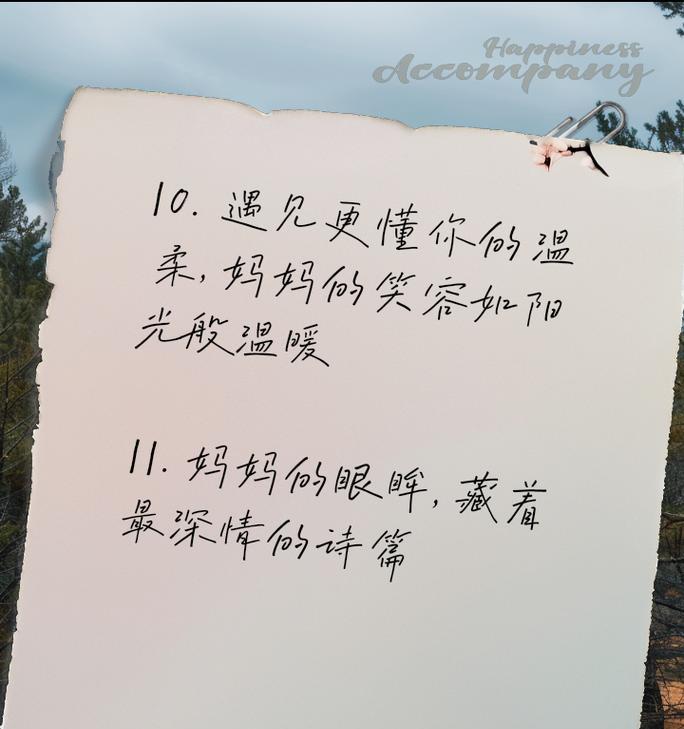 Happiness
Accompany
10. 遇见更懂你的温
柔,妈妈的笑容如阳
光般温暖
11. 妈妈的眼眸,藏着
最深情的诗篇